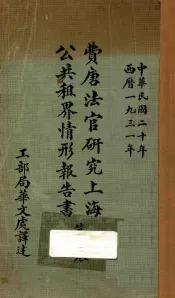 中華民國二十年
西曆一九三一年
費唐法官研究上海
公共租界情形報告書
工部局華文處譯述